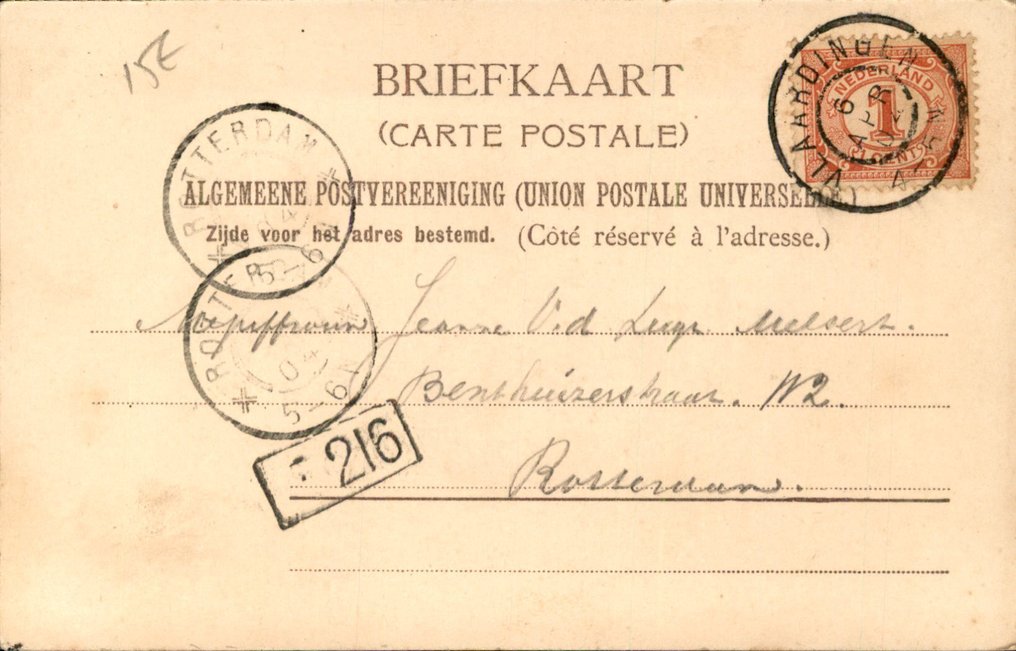 15E
BRIEFKAART
(CARTE POSTALE)
ALGEMEENE POSTVEREENIGING (UNION POSTALE UNIVERSELLE)
Zijde voor het adres bestemd. (Côté réservé à l'adresse.)
VLAARDINGEN
6 APR
NEDERLAND
1
CENT
ROTTERDAM
5-6
ROTTER
04
5-6
216
Mejuffrouw Jeanne v.d.
Benthuizerstraat. W2.
Rotterdam.